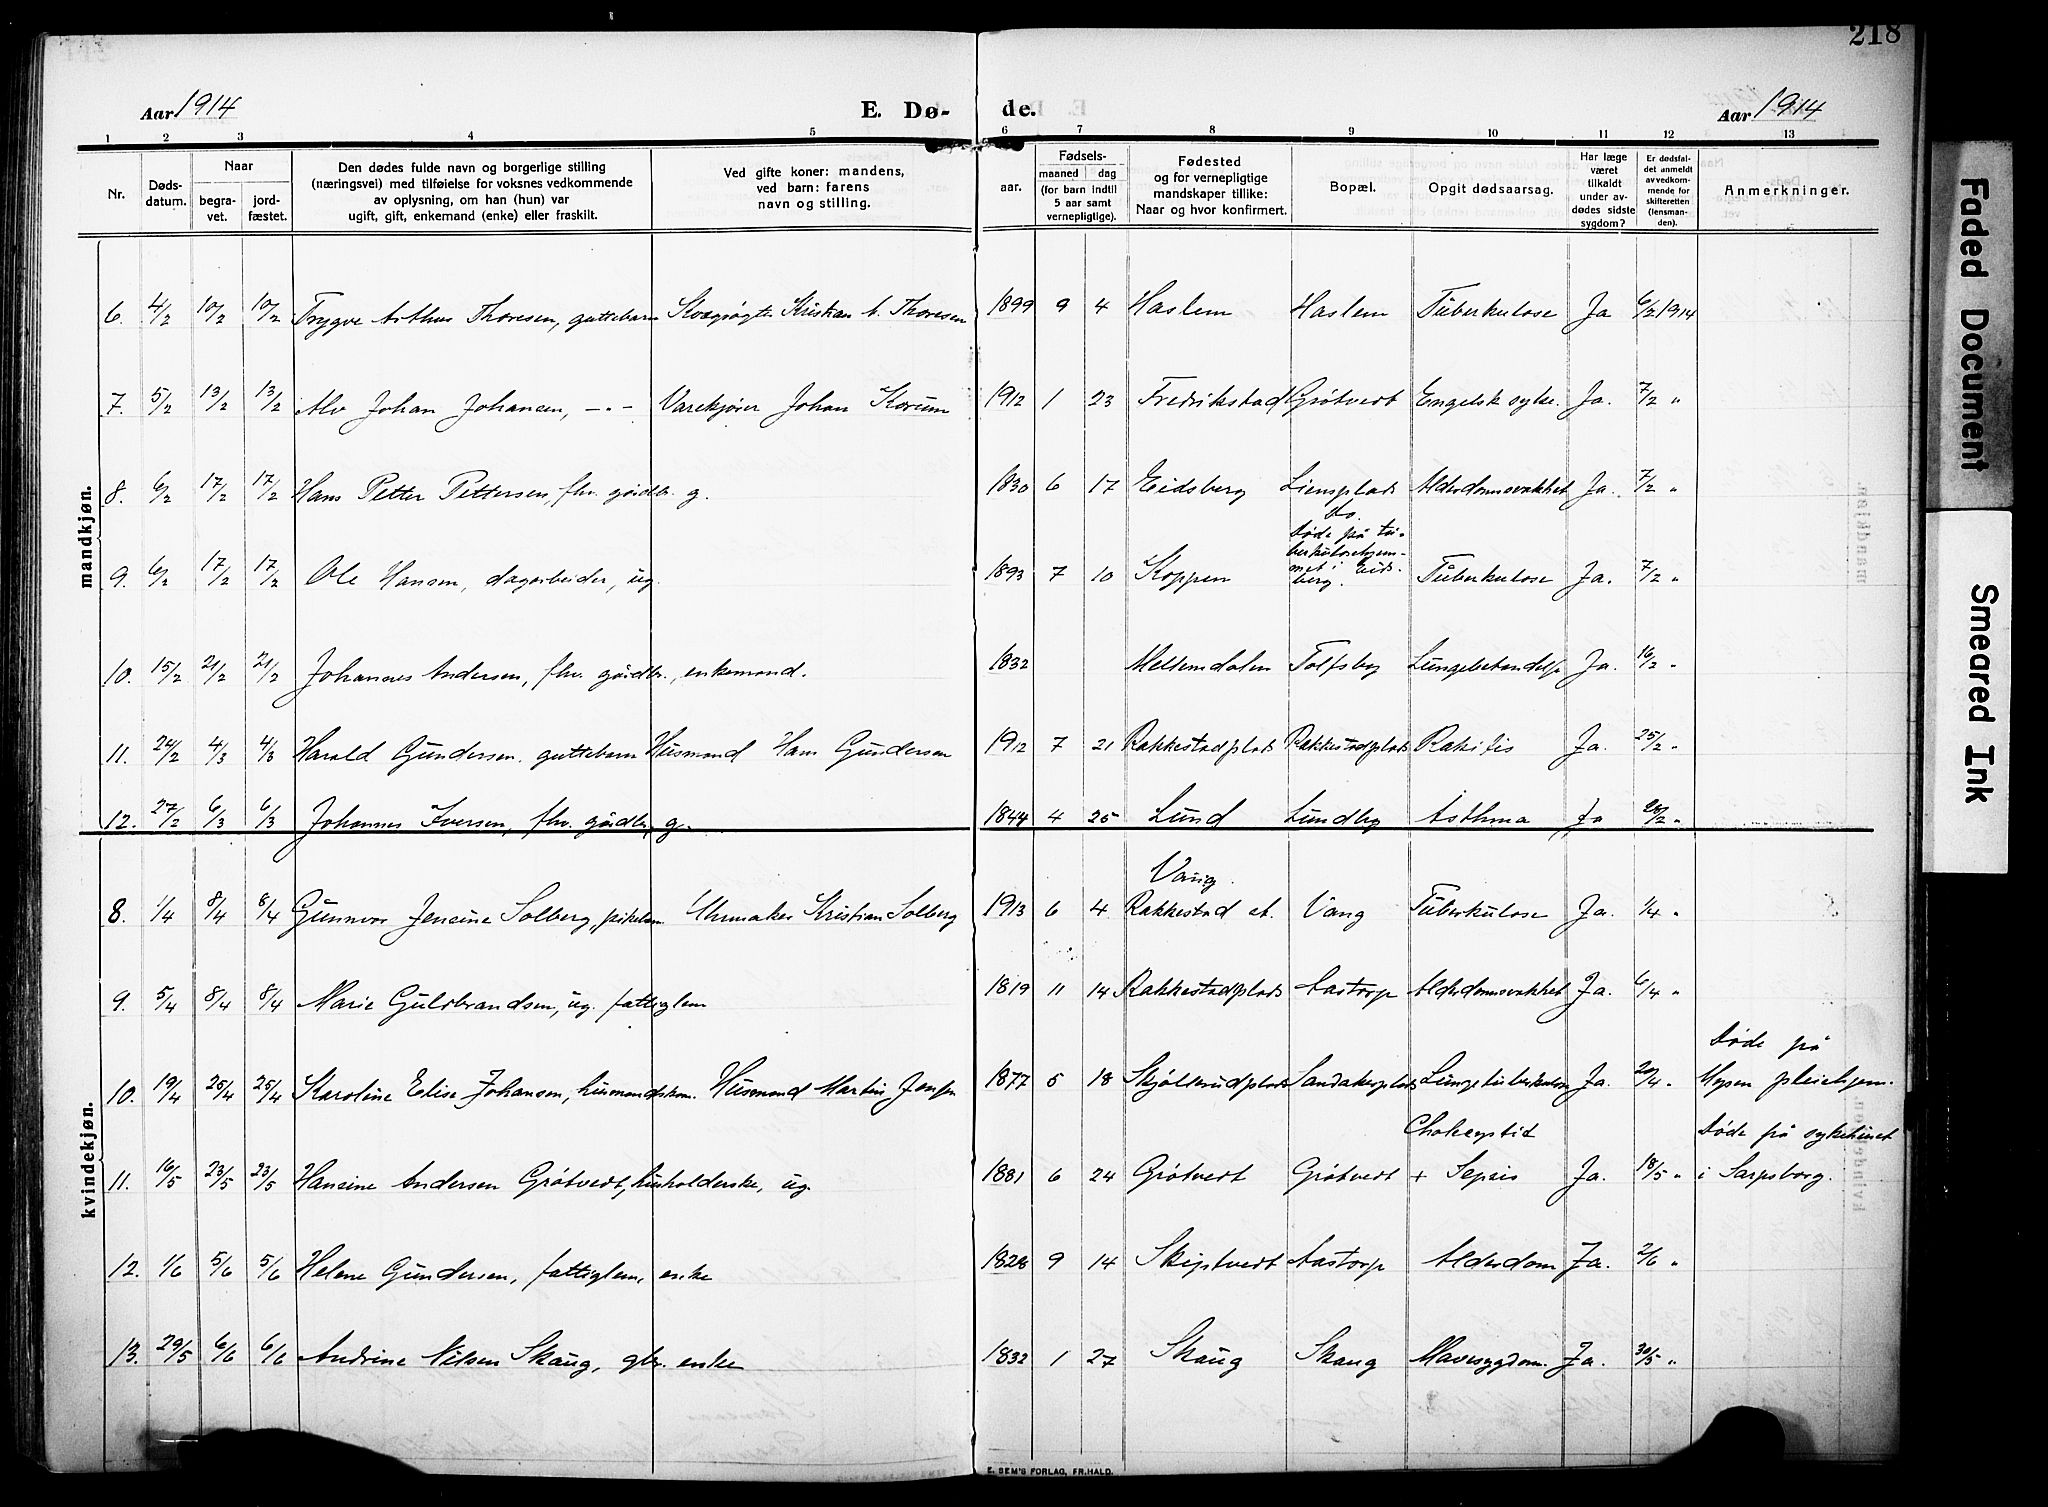 218
Aar 1914 E. Dø- de. Aar 1914
1 2 3 4 5 6 7 8 9 10 11 12 13
Nr. Døds-datum. Naar begra-vet. jord-fæstet. Den dødes fulde navn og borgerlige stilling (næringsvei) med tilføielse for voksnes vedkommende av oplysning, om han (hun) var ugift, gift, enkemand (enke) eller fraskilt. Ved gifte koner: mandens, ved barn: farens navn og stilling. Fødsels- aar. maaned dag (for barn indtil 5 aar samt vernepligtige). Fødested og for vernepligtige mandskaper tillike: Naar og hvor konfirmert. Bopæl. Opgit dødsaarsag. Har læge været tilkaldt under av-dødes sidste sygdom? Er dødsfal-det anmeldt av vedkom-mende for skifteretten (lensman-den). Anmerkninger.
mandkjøn.
6. 4/2 10/2 10/2 Trygve Arthur Thoresen, guttebarn Kristian A. Thoresen 1899 9 4 Haslem Haslem Tuberkulose Ja 6/2 1914
7. 5/2 13/2 13/2 Alv Johan Johansen, -"- Varekjører Johan Korum 1912 1 23 Fredrikstad Grøtvedt Engelsk syke. Ja. 7/2 "
8. 6/2 17/2 17/2 Hans Petter Pettersen, fhv. gårdbr. g. 1830 6 17 Eidsberg Liensplads Alderdomssvakhet Ja. 7/2 "
9. 6/2 17/2 17/2 Ole Hansen, dagarbeider, ug. 1893 7 10 Koppen do. Døde på tu-berkulosehjem-met i Eids-berg. Tuberkulose Ja. 7/2 "
10. 15/2 21/2 21/2 Johannes Andersen, fhv. gårdbr., enkemand. 1832 Mellemdalen Tolfsby Lungebetændelse Ja. 16/2 "
11. 24/2 4/3 4/3 Harald Gundersen. guttebarn Husmand Hans Gundersen 1912 7 21 Rakkestadplads Rakkestadplads Rakitis Ja. 25/2 "
12. 27/2 6/3 6/3 Johannes Iversen, fhv. gårdbr, g. 1844 4 25 Lund Lundby Asthma Ja 28/2 "
kvindekjøn.
8. 1/4 8/4 8/4 Gunnvor Jensine Solberg, pikebarn Uhrmaker Kristian Solberg 1913 6 4 Vang. Rakkestad st. Vang Tuberkulose Ja. 1/4 "
9. 5/4 8/4 8/4 Marie Gulbrandsen, ug. fattiglem 1819 11 14 Rakkestadplads Aastorp Alderdomssvakhet Ja. 6/4 "
10. 19/4 25/4 25/4 Karoline Elise Johansen, husmandskone. Husmand Martin Jensen 1877 5 18 Skjølerudplads Sandakerplads Lungetuberkulose Ja. 20/4 " Døde på Mysen pleiehjem.
11. 16/5 23/5 23/5 Hansine Andersen Grøtvedt, husholderske, ug. 1881 6 24 Grøtvedt Grøtvedt + Sepsis Ja. 18/5 " Døde på sykehuset i Sarpsborg.
12. 1/6 5/6 5/6 Helene Gundersen, fattiglem, enke 1828 9 14 Skiptvedt Aastorp Alderdom Ja. 2/6 "
13. 29/5 6/6 6/6 Andrine Nilsen Skaug, gbr. enke 1832 1 27 Skaug Skaug Mavesygdom. Ja. 30/5 "
E. SEM'S FORLAG, FR.HALD.
Faded Document
Smeared Ink